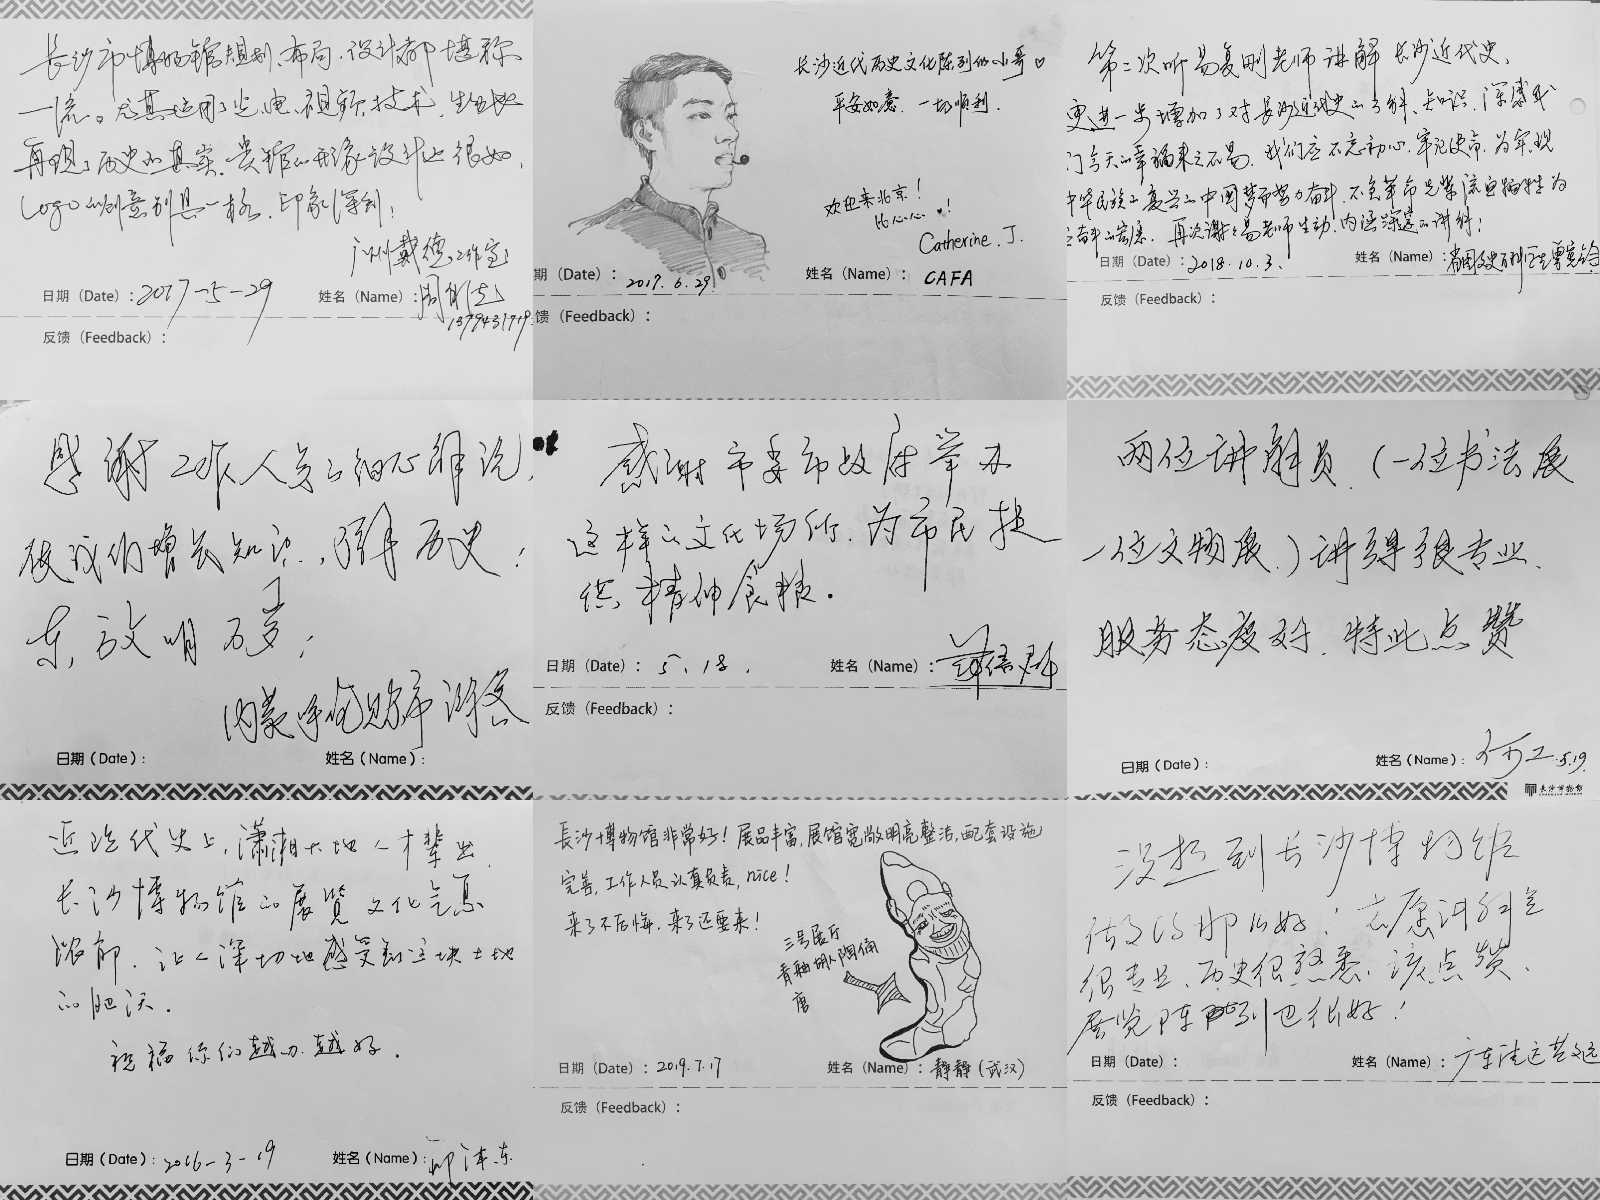 长沙市博物馆规划、布局、设计都堪称
一流。尤其运用了光、电、视频技术,生动地
再现了历史的真实。贵馆的形象设计也很好,
Logo的创意别具一格,印象深刻!
广州戴德工作室
日期(Date):2017-5-29 姓名(Name):
反馈(Feedback):
长沙近代历史文化陈列的小哥♡
平安如意 一切顺利.
欢迎来北京!
比心心 !
Catherine. J.
期(Date): 2017. 6. 29. 姓名(Name): CAFA
馈(Feedback):
第二次听易复刚老师讲解长沙近代史,
更进一步增加了对长沙近代史的了解、知识,深感我
们今天的幸福来之不易,我们应不忘初心,牢记使命,为实现
中华民族的复兴的中国梦而努力奋斗,不负革命先辈流血牺牲为
之奋斗的宏愿。再次谢谢易老师生动、内涵深邃的讲解!
日期(Date):2018.10.3. 姓名(Name):
反馈(Feedback):
感谢工作人员的细心解说,
使我们增长知识,了解历史!
东方文明万岁!
内蒙呼和浩特市
日期(Date): 姓名(Name):
感谢市委市政府举办
这样的文化场所,为市民提
供精神食粮.
日期(Date): 5.18. 姓名(Name):
反馈(Feedback):
两位讲解员(一位书法展
一位文物展)讲得很专业.
服务态度好,特此点赞
日期(Date): 姓名(Name): 何工 5.19.
長沙博物館
近现代史上,潇湘大地人才辈出,
长沙博物馆的展览文化气息
浓郁,让人深切地感受到这块土地
的肥沃.
祝福你们越办越好.
日期(Date):2016-3-19 姓名(Name):
長沙博物馆非常好!展品丰富,展馆宽敞明亮整洁,配套设施
完善,工作人员认真负责,nice!
来了不后悔,来了还要来!
三号展厅
青釉胡人陶俑
唐
日期(Date):2019.7.17 姓名(Name):静静(武汉)
反馈(Feedback):
没想到长沙博物馆
做的那么好!志愿讲解员
很专业,历史很熟悉,该点赞,
展览陈列也很好!
日期(Date): 姓名(Name): 广东清远
反馈(Feedback):